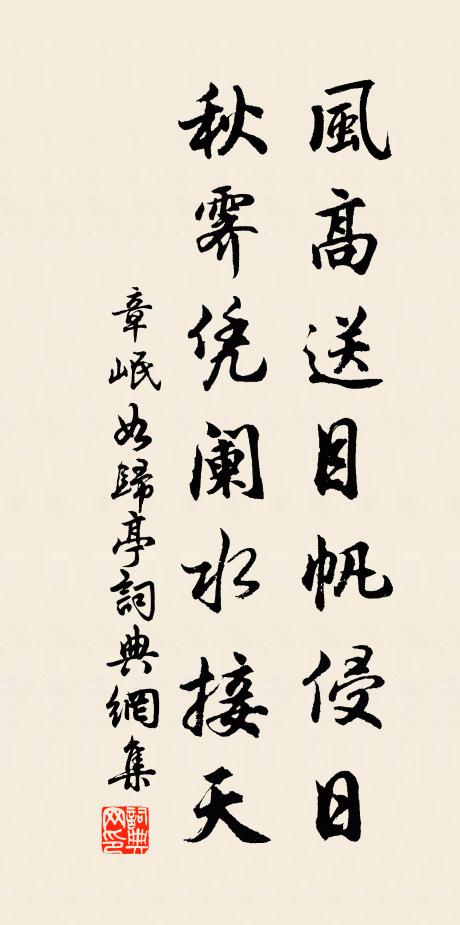 風高送目帆侵日
秋霽凭闌水接天
章岷如歸亭詞典網集
詞典網印